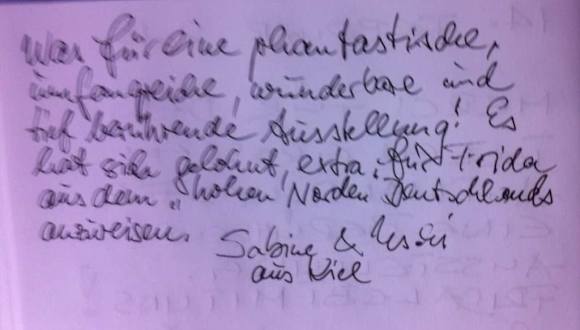 Was für eine phantastische,
umfangreiche, wunderbare und
tief berührende Ausstellung! Es
hat sich gelohnt, extra für Frida
aus dem „hohen Norden Deutschlands
anzureisen.
Sabine &
aus Kiel